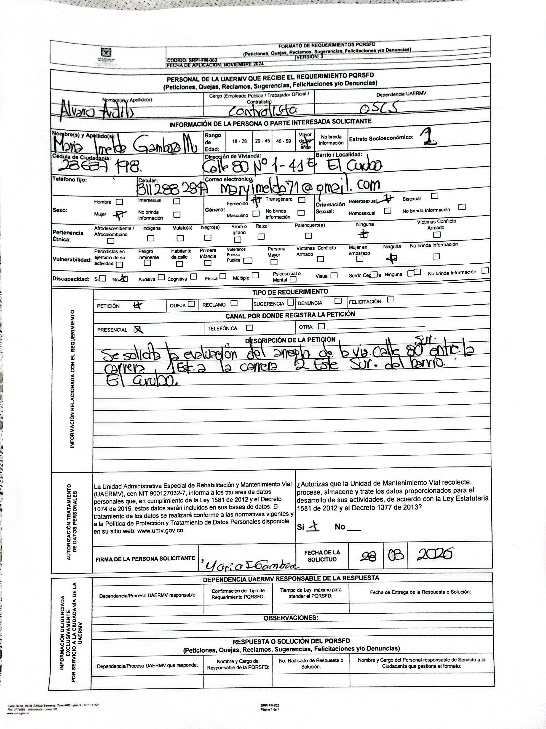 FORMATO DE REQUERIMIENTOS PQRSFD
(Peticiones, Quejas, Reclamos, Sugerencias, Felicitaciones y/o Denuncias)
CODIGO: SRPI-FM-003 VERSION: 3
FECHA DE APLICACIÓN: NOVIEMBRE 2024
PERSONAL DE LA UAERMV QUE RECIBE EL REQUERIMIENTO PQRSFD
(Peticiones, Quejas, Reclamos, Sugerencias, Felicitaciones y/o Denuncias)
Nombre y Apellido(s) Cargo (Empleado Público / Trabajador Oficial / Contratista Dependencia UAERMV
Alvaro Contratista OSCS
INFORMACIÓN DE LA PERSONA O PARTE INTERESADA SOLICITANTE
Nombre(s) y Apellido(s) Rango de Edad 18 - 28 29 - 45 46 - 59 No brinda información Estrato Socioeconómico: 1
Maria Imelda Gamboa M
Cédula de Ciudadanía: Dirección de Vivienda: Barrio / Localidad:
Calle 80 N° 1-41 E El Curubo
Teléfono fijo: Celular: Correo electrónico:
maryimelda71@gmail.com
Sexo: Hombre Intersexual Género: Femenino Transgénero Orientación Sexual: Heterosexual Bisexual
Mujer No brinda información Masculino No brinda información Homosexual No brinda Información
Pertenencia Étnica: Afrodescendiente / Afrocolombiano Indígena Mulato(a) Negro(a) Room o gitano Raizal Palenquero(a) Ninguna Víctimas Conflicto Armado
Vulnerabilidad: Periodistas en ejercicio de su actividad Peligro inminente Habitante de calle Primera infancia Veteranos Fuerza Pública Persona Mayor Víctimas Conflicto Armado Mujer en embarazo Ninguna No brinda información
Discapacidad: Si No Auditiva Cognitiva Física Múltiple Psicosocial o Mental Visual Sordo Ceguera Ninguna No brinda Información
INFORMACIÓN RELACIONADA CON EL REQUERIMIENTO
TIPO DE REQUERIMIENTO
PETICIÓN X QUEJA RECLAMO SUGERENCIA DENUNCIA FELICITACIÓN
CANAL POR DONDE REGISTRA LA PETICIÓN
PRESENCIAL X TELEFÓNICA OTRA
DESCRIPCIÓN DE LA PETICIÓN
Se solicita la evaluación del arreglo de la via calle 80 Sur entre la
carrera 1 Este a la carrera 2 Este Sur. del barrio
El Curubo.
AUTORIZACIÓN TRATAMIENTO DE DATOS PERSONALES
La Unidad Administrativa Especial de Rehabilitación y Mantenimiento Vial
(UAERMV), con NIT 900127032-7, informa a los titulares de datos
personales que, en cumplimiento de la Ley 1581 de 2012 y el Decreto
1074 de 2015, estos datos serán incluidos en sus bases de datos. El
tratamiento de los datos se realizará conforme a las normativas vigentes y
a la Política de Protección y Tratamiento de Datos Personales disponible
en su sitio web: www.umv.gov.co.
¿Autorizas que la Unidad de Mantenimiento Vial recolecte,
procese, almacene y trate los datos proporcionados para el
desarrollo de sus actividades, de acuerdo con la Ley Estatutaria
1581 de 2012 y el Decreto 1377 de 2013?
Si X No __
FIRMA DE LA PERSONA SOLICITANTE FECHA DE LA SOLICITUD
INFORMACIÓN DILIGENCIADA EXCLUSIVAMENTE POR SERVICIO A LA CIUDADANÍA DE LA UAERMV
DEPENDENCIA UAERMV RESPONSABLE DE LA RESPUESTA
Dependencia/Proceso UAERMV responsable Confirmación del Tipo de Requerimiento PQRSFD: Tiempo de Ley máximo para atender el PQRSFD: Fecha de Entrega de la Respuesta o Solución:
OBSERVACIONES:
RESPUESTA O SOLUCIÓN DEL PQRSFD
(Peticiones, Quejas, Reclamos, Sugerencias, Felicitaciones y/o Denuncias)
Dependencia/Proceso UAERMV que responde: Nombre y Cargo del Responsable de la PQRSFD: No. Radicado de Respuesta o Solución: Nombre y Cargo del Personal responsable de Servicio a la Ciudadanía que gestiona el formato:
Página 1 de 1